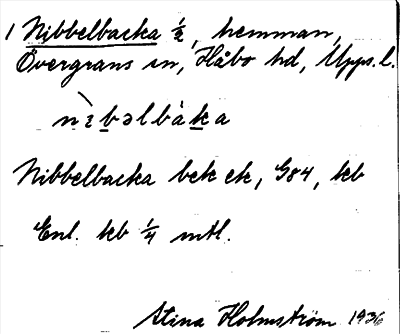 1 Nibbelbacka 1/2, hemman,
Övergrans sn, Håbo hd, Upps. l.
nìbəlbáka
Nibbelbacka bek ek, G84, kb
Enl. kb 1/4 mtl.
Stina Holmström 1936